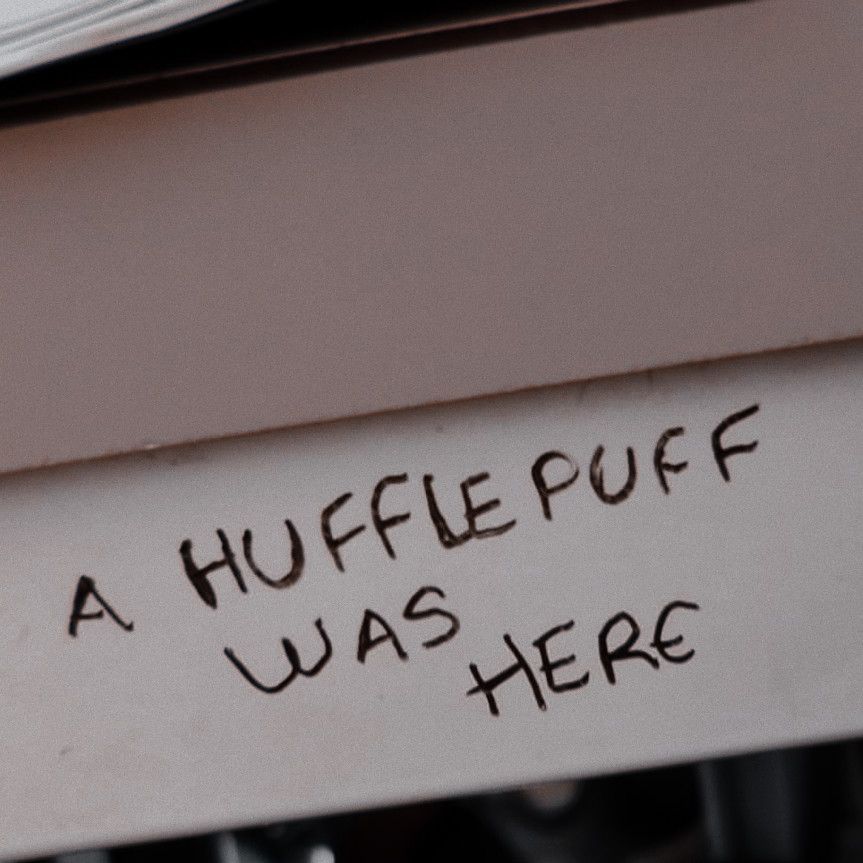 A HUFFLEPUFF
WAS
HERE